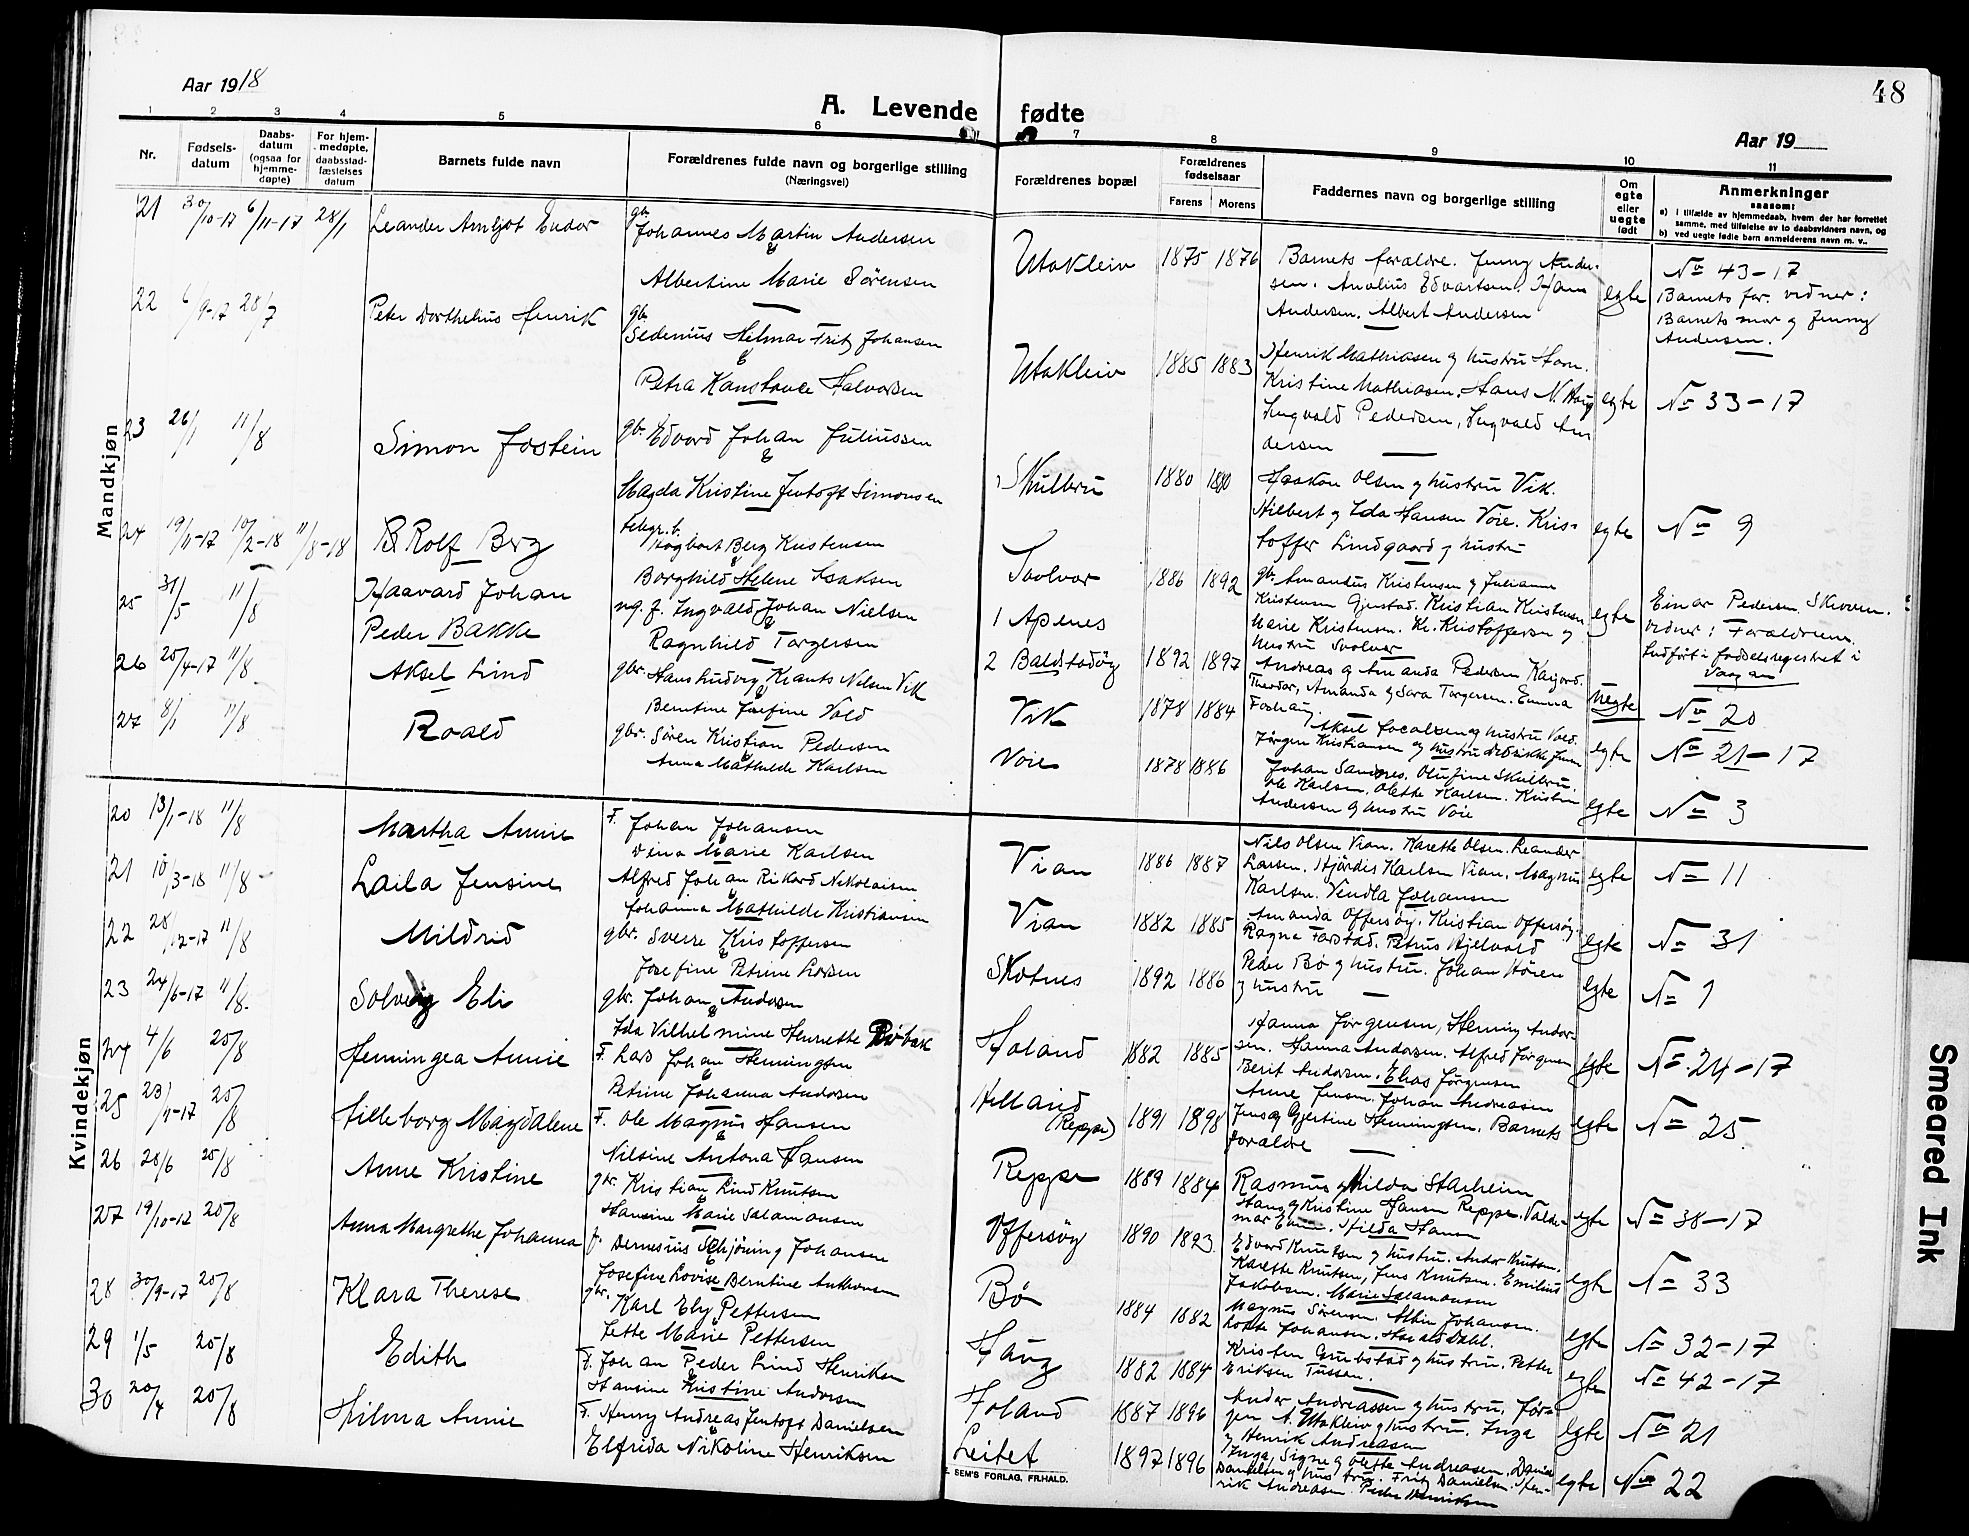 48
Aar 1918
A. Levende fødte
Aar 19
1 2 3 4 5 6 7 8 9 10 11
Nr.
Fødsels-
datum
Daabs-
datum
(ogsaa for
hjemme-
døpte)
For hjem-
medøpte,
daabsstad-
fæstelses
datum
Barnets fulde navn
Forældrenes fulde navn og borgerlige stilling
(Næringsvei)
Forældrenes bopæl
Forældrenes
fødselsaar
Farens Morens
Faddernes navn og borgerlige stilling
Om
egte
eller
uegte
født
Anmerkninger
saasom:
a) i tilfælde av hjemmedaab, hvem der har forrettet
samme, med tilføielse av to daabsvidners navn, og
b) ved uegte fødte barn anmelderens navn m. v.
Mandkjøn
21 30/10-17 6/11-17 28/1 Leander Arnljot Endor
gbr. Johannes Martin Andersen
&
Albertine Marie Sørensen
Utakleiv 1875 1876
Barnets forældre. Jenny Ander-
sen. Anolius Edvartsen. Hans
Andersen. Albert Andersen
egte
No 43-17
Barnets far. vidner:
Barnets mor og Jenny
Andersen.
22 6/9-17 28/7 Peter Dorthelius Henrik
gbr. Sedenius Helmar Fritz Johansen
&
Petra Konstance Halvorsen
Utakleiv 1885 1883
Henrik Mathiasen og hustru
Kristine Mathiasen. Hans N. Haug
Ingvald Pedersen, Ingvald An
dersen
egte No 33-17
23 26/1 11/8 Simon Jostein
gbr. Edvard Johan Juliussen
&
Magda Kristine Jentoft Simonsen
Skulbru 1880 1880
Haakon Olsen og hustru Vik.
Hilbert og Ida Hansen Voie. Kris-
toffer Lindgaard og hustru
egte No 9
24 19/11-17 10/2-18 11/8-18 Rolf Berg
telegr. b. Dagbart Berg Kristensen
&
Borghild Helene Isaksen
Svolvær 1886 1892
gbr. Amandus Kristensen og Julianne
Kristensen Gjerstad. Kristian Kristensen
Marie Kristensen. Kr. Kristoffersen og
hustru Svolvær
egte
Einar Pedersen. Skroven.
vidner: Forældrene.
Indført i fødselsregistret i
Vaagan
25 31/5 11/8 Haavard Johan
Peder Bakke
ug. f. Ingvald Johan Nielsen
&
Ragnhild Torgersen
1 Apenes
2 Baldstadøy 1892 1897
Andreas og Amanda Pedersen
Theodor, Amanda og Sara Torgersen. Emma
uegte No 20
26 25/4-17 11/8 Aksel Lind
gbr. Hans Ludvig Krants Nilsen Vik
&
Berntine Josefine Vold
Vik 1878 1884
Aksel Jocobsen og hustru Vold.
Jørgen Kristiansen og hustru
egte No 21-17
27 8/1 11/8 Roald
gbr. Søren Kristian Pedersen
&
Anna Mathilde Karlsen
Voie 1878 1886
Johan Sandnes. Olufine Skulbru.
Ole Karlsen. Olette Karlsen. Kristen
Andersen og hustru Voie
egte No 3
Kvindekjøn
20 13/1-18 11/8 Martha Annie
F. Johan Johansen
&
Dina Marie Karlsen
Vian 1886 1887
Nils Olsen Vian. Karette Olsen. Leander
Larsen. Hjørdis Karlsen Vian. Magnus
Karlsen. Vendla Johansen
egte No 11
21 10/3-18 11/8 Laila Jensine
Alfred Johan Rikard Nikolaisen
&
Johanna Mathilde Kristiansen
Vian 1882 1885
Amanda Offersøy. Kristian Offersøy.
Ragna Farstad. Petrus Hjelvard
egte No 31
22 28/12-17 11/8 Mildrid
gbr. Sverre Kristoffersen
&
Josefine Petrine Larsen
Skotnes 1892 1886
Peder Bø og hustru. Johan Horen
og hustru
egte No 1
23 24/6-17 11/8 Solveig Eli
gbr. Johan Andersen
&
Ida Vilhelmine Henriette Rørbæk
Holand 1882 1885
Hanna Jørgensen, Henning Ander-
sen. Hanna Andersen. Alfred Jørgensen
Berit Andersen. Elias Jørgensen
egte No 24-17
24 4/6 25/8 Hemingea Annie
F. Lars Johan Hemingsen
&
Petrine Johanna Andersen
Helland
(Reppe) 1891 1898
Anne Jensen. Johan Andreasen
Jens og Gjertine Henningsen. Barnets
forældre
egte No 25
25 23/11-17 25/8 Lilleborg Magdalene
F. Ole Magnus Hansen
&
Nilsine Antona Hansen
Reppe 1889 1884
Rasmus og Hilda Starheim
Hans og Kristine Hansen Reppe. Valde-
mar. Hilda Hansen
egte No 38-17
26 20/6 25/8 Anne Kristine
gbr. Kristian Lind Knutsen
&
Hansine Marie Salamonsen
Offersøy 1890 1893
Edvard Knutsen og hustru. Andor Knutsen.
Karette Knutsen, Jens Knutsen. Emilius
Jakobsen. Marie Salamonsen
egte No 33
27 19/10-17 25/8 Anna Margrethe Johanna
f. Bernesius Schjøning Johansen
&
Josefine Lovise Berntine Anthonsen
Bø 1884 1882
Magnus Sørensen. Albin Johansen.
Lotte Johansen. Harald Dahl.
egte No 32-17
28 30/9-17 25/8 Klara Therese
gbr. Karl Ely Pettersen
&
Jette Marie Pettersen
Haug 1882 1884
Kristen Grubstad og hustru. Petter
Eriksen Tussen.
egte No 42-17
29 1/5 25/8 Edith
F. Johan Peder Lind Henriksen
Hansine Kristine Andersen
Holand 1887 1896
Andor Andreassen og hustru. Jør-
gen A. Utakleiv og hustru. Inga
og Henrik Andreasen
egte No 21
30 20/4 25/8 Hilma Annie
F. Henry Andreas Jentoft Danielsen
&
Elfrida Nikoline Henriksen
Leitet 1897 1896
Inga, Signe og Olette Andreasen. Daniel
Danielsen og hustru. Fritz Danielsen. Hen-
rik Andreasen. Peder Henriksen
egte No 22
SEM'S FORLAG, FR.HALD.
Smeared Ink